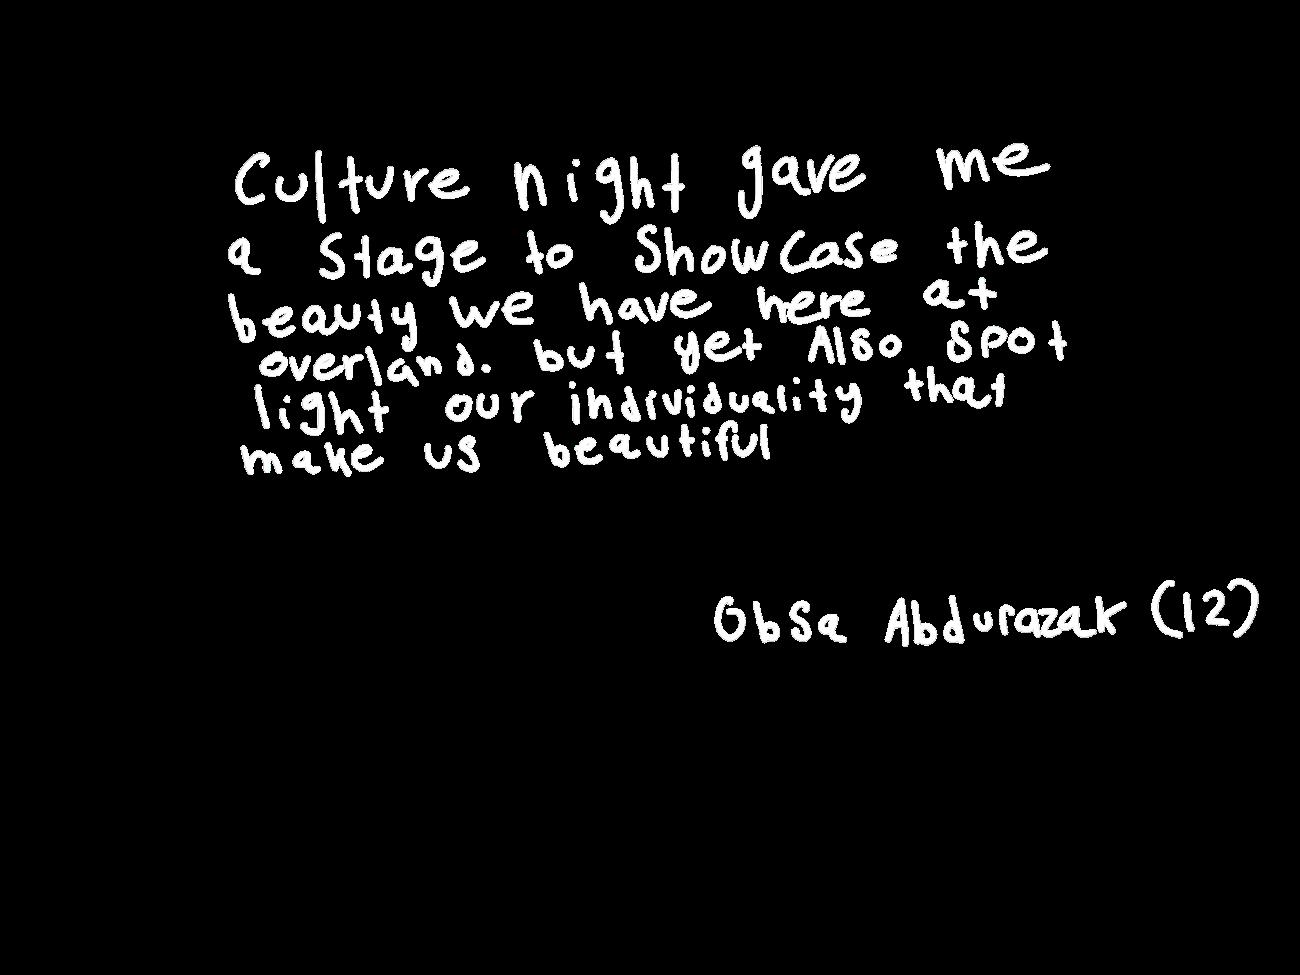 Culture night gave me
a stage to Showcase the
beauty we have here at
overland. but yet Also spot
light our individuality that
make us beautiful
Obsa Abdurazak (12)